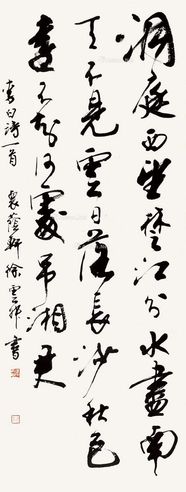 洞庭西望楚江分水盡南
天不見雲日落長沙秋色
遠不知何處吊湘君
李白詩一首 裴蔭軒 徐雲祥書